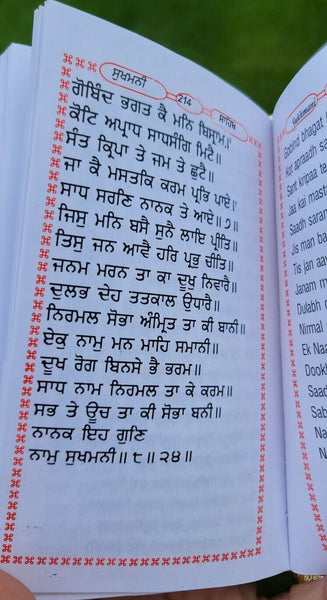 ਸੁਖਮਨੀ 214 ਸਾਹਿਬ
ਗੋਬਿੰਦ ਭਗਤ ਕੈ ਮਨਿ ਬਿਸ੍ਰਾਮ॥
ਕੋਟਿ ਅਪ੍ਰਾਧ ਸਾਧਸੰਗਿ ਮਿਟੈ॥
ਸੰਤ ਕ੍ਰਿਪਾ ਤੇ ਜਮ ਤੇ ਛੁਟੈ॥
ਜਾ ਕੈ ਮਸਤਕਿ ਕਰਮ ਪ੍ਰਭਿ ਪਾਏ॥
ਸਾਧ ਸਰਣਿ ਨਾਨਕ ਤੇ ਆਏ॥੭॥
ਜਿਸੁ ਮਨਿ ਬਸੈ ਸੁਨੈ ਲਾਇ ਪ੍ਰੀਤਿ॥
ਤਿਸੁ ਜਨ ਆਵੈ ਹਰਿ ਪ੍ਰਭੁ ਚੀਤਿ॥
ਜਨਮ ਮਰਨ ਤਾ ਕਾ ਦੂਖੁ ਨਿਵਾਰੈ॥
ਦੁਲਭ ਦੇਹ ਤਤਕਾਲ ਉਧਾਰੈ॥
ਨਿਰਮਲ ਸੋਭਾ ਅੰਮ੍ਰਿਤ ਤਾ ਕੀ ਬਾਨੀ॥
ਏਕੁ ਨਾਮੁ ਮਨ ਮਾਹਿ ਸਮਾਨੀ॥
ਦੂਖ ਰੋਗ ਬਿਨਸੇ ਭੈ ਭਰਮ॥
ਸਾਧ ਨਾਮ ਨਿਰਮਲ ਤਾ ਕੇ ਕਰਮ॥
ਸਭ ਤੇ ਊਚ ਤਾ ਕੀ ਸੋਭਾ ਬਨੀ॥
ਨਾਨਕ ਇਹ ਗੁਣਿ
ਨਾਮੁ ਸੁਖਮਨੀ॥੮॥੨੪॥
Gobind bhagat
Kot apraadh sa
Sant kripaa te
Jaa kai mastak
Saadh saran
Jis man ba
Tis jan aav
Janam m
Dulabh
Nirmal
Ek Na
Dookh
Saad
Sab
Na
Na